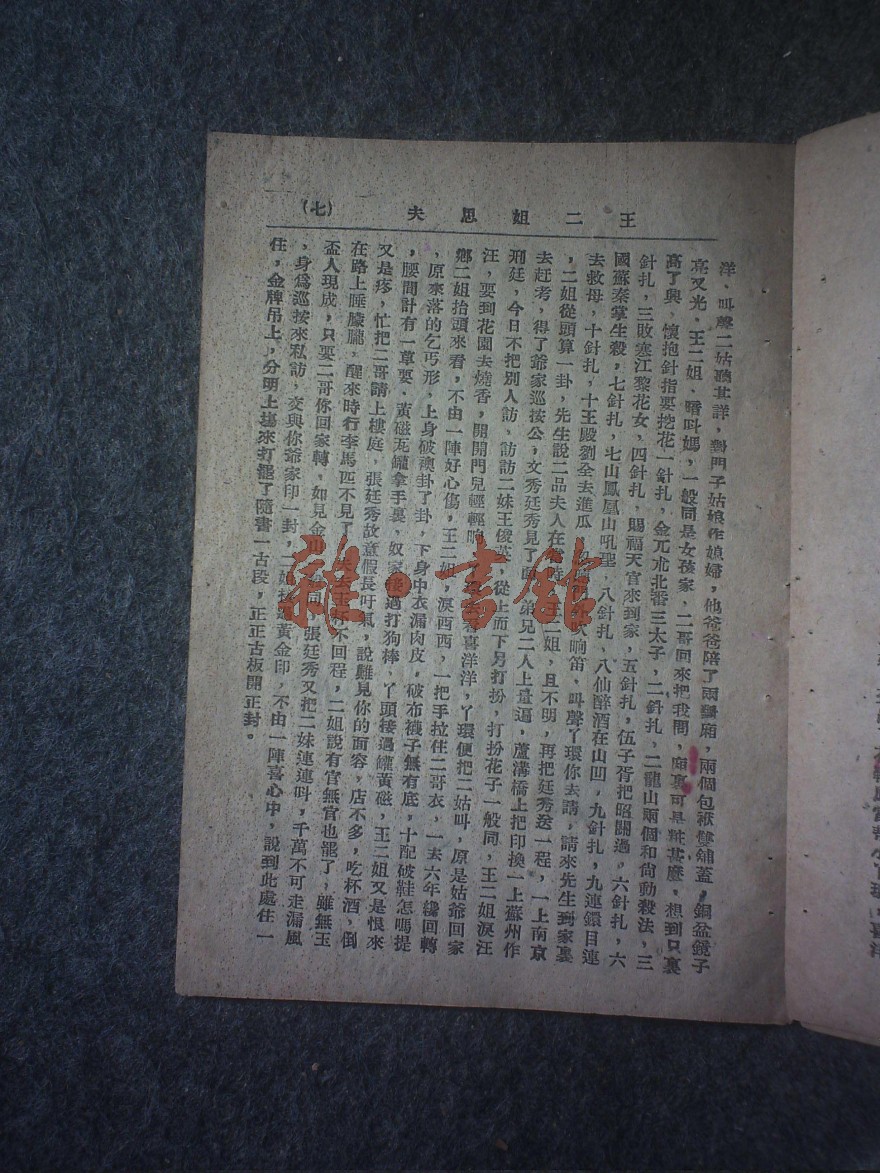 王二姐思夫　（七）
洋、叫聲二姑聽其詳，對門子姑娘作媳婦，他爸爸陪了兩豎廂，兩個包袱雙鋪蓋，銅盆鏡子
亮又光，王二姐、嗜叫媽，一般同是女孩家，二哥回來把我問，可是甚麽，想到只裏
高了興　懷抱針指要挖花一針扎，金兀朮北番三太子，二針扎，二龍山兩個和尙動殺法，三
針扎，三敗寒江黎花女，四針扎，賜福天官來到家，五針扎，伍子胥把昭關過，六針扎，六
國蘇秦掌生殺，七針扎，七山鳳凰山吼聖，八針扎，八仙醉酒在山凹，九針扎，九連鐶目連
去救母，十針扎，十王殿劉全去進瓜
，二姐從頭算一卦，先生說二品夫人在　响笛，叫聲丫環你去請，請來先生到家裏
去赶考，得了爺家巡按公，文秀廷秀見了面　弟兄二人上量逼，蘆溝橋上把印換一上蘇州作
王二姐，且不明，再把廷秀送一程，一上南京
刑廷，今日不把別人訪，訪訪二妹王俊英　從上而下另打扮，打扮花子一般同，王二姐淚汪
汪，要到花園去燒香，開開門兒輕輕响　喜洋洋，丫環便把二姑叫，原是姑爺回家
鄉二姐抬頭來看，不由一陣好心傷，王二姐，淚西西，一把手拉住二哥衣，一去六年纔回轉
，原來落的乞丐形，上身破襖卦了卦，下身中衣漏肉皮，破布襪子無有底，十配破鞋怎嗎提
，腰間計有一草要，黃磁瓦罐拿手裏，奴家　過打狗棒，丫頭接過罐黃磁，王二姐又是恨來
又是疼，忙把二哥請上樓庭，張廷秀故意假長吁氣，說難見你的面容，店不多，吃杯酒，倒
在路上睡朦朧，醒來時行李馬匹不見了　不回程，二姐說有官無官也罷了，雖無玉
盃人現成，只要二哥你回家轉，如見金　同，張廷秀又把二妹連連叫，千萬不可走漏風
，身爲巡按來私訪，交與你爺家印一封，二　黃金印，不由一陣喜心中，說到此處住一
住，金牌吊上，分明上塲來打罷了隨書一古段，正正古板開正封。
雜·書館